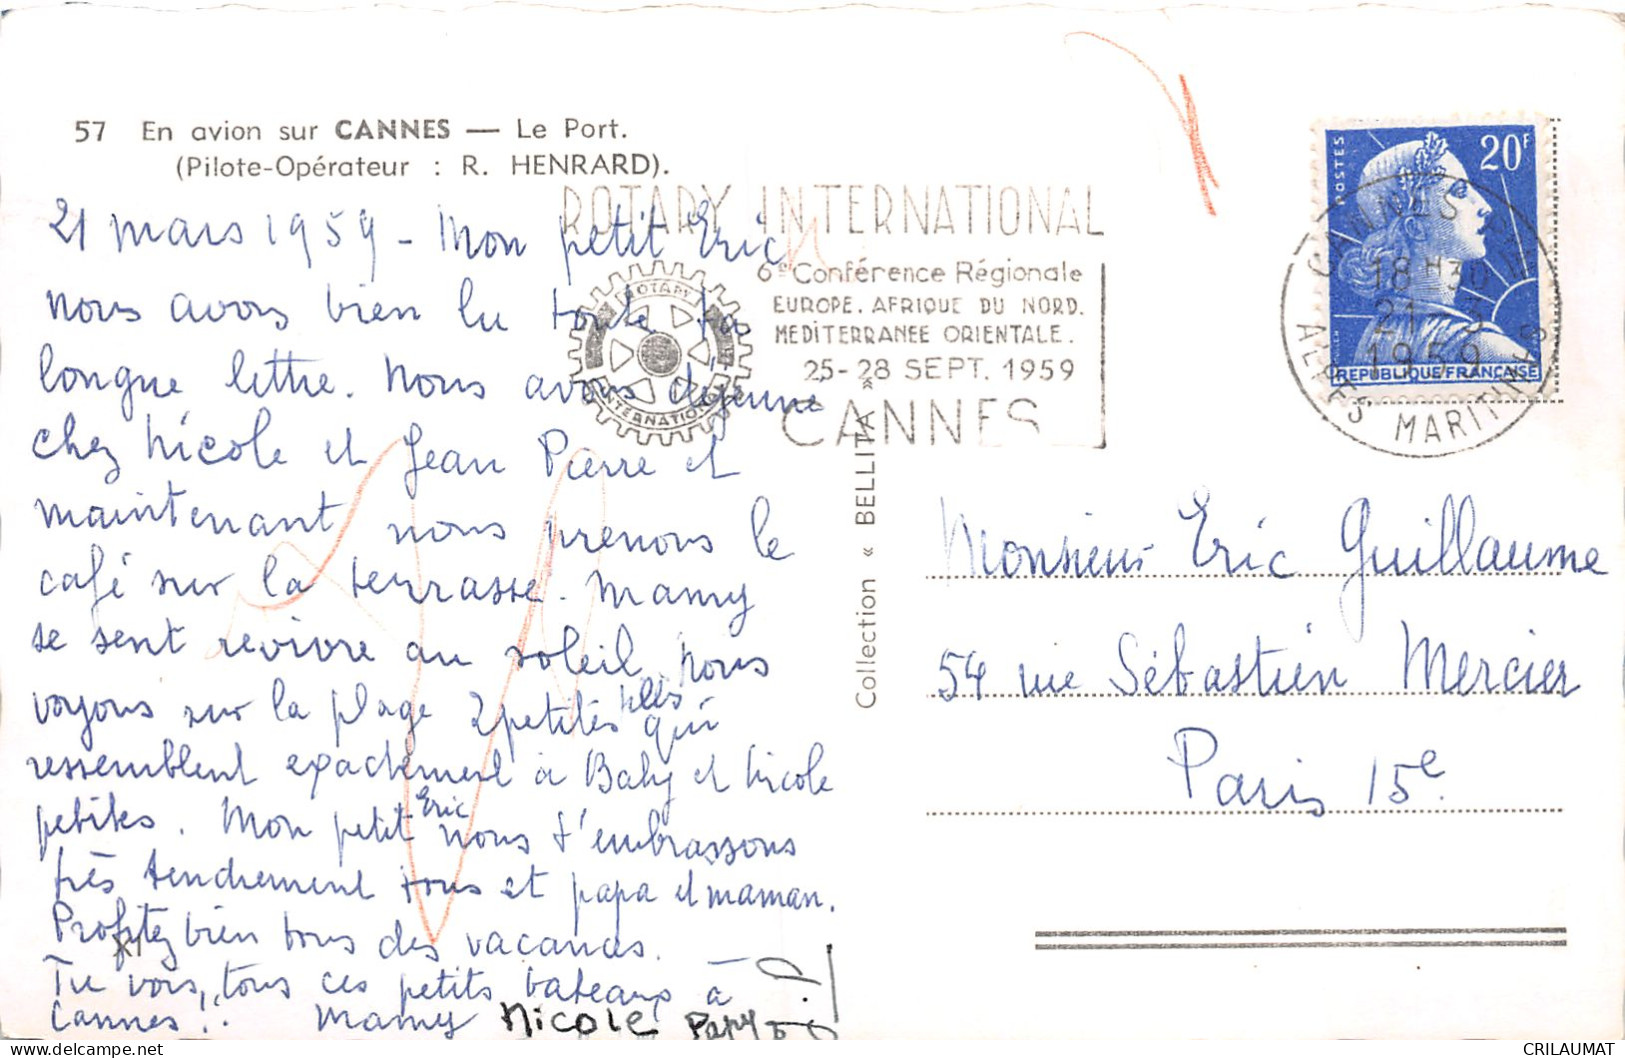 57 En avion sur CANNES — Le Port.
(Pilote-Opérateur : R. HENRARD).
21 mars 1959 - Mon petit Eric
nous avons bien lu toute ta
longue lettre. Nous avons déjeuné
chez Nicole et Jean Pierre et
maintenant nous prenons le
café sur la terrasse. Mamy
se sent revivre au soleil. Nous
voyons sur la plage 2 petites filles qui
ressemblent exactement à Baby et Nicole
petites. Mon petit Eric nous t'embrassons
très tendrement tous et papa et maman.
Profitez bien tous des vacances.
Tu vois, tous ces petits bateaux à
Cannes!! Mamy Nicole Papy
ROTARY INTERNATIONAL
6e Conférence Régionale
EUROPE. AFRIQUE DU NORD.
MEDITERRANEE ORIENTALE.
25-28 SEPT. 1959
CANNES
ROTARY
INTERNATIONAL
Collection « BELLITA »
POSTES
20F
REPUBLIQUE FRANÇAISE
CANNES
18 H30
21-3
1959
ALPES MARITIMES
Monsieur Eric Guillaume
54 rue Sébastien Mercier
Paris 15e
CRILAUMAT
delcampe.net